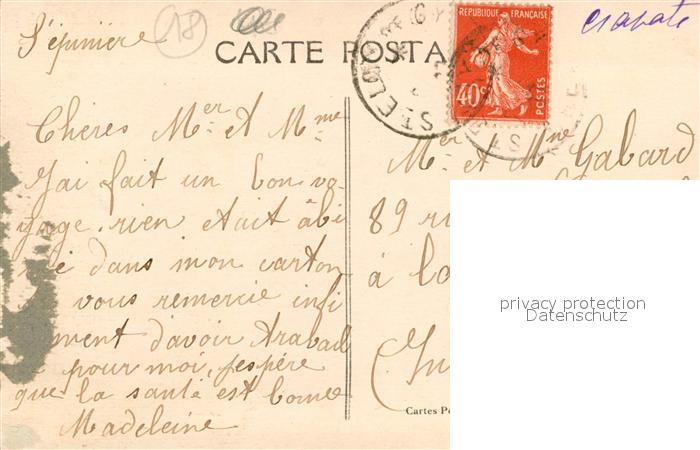 18
l'épinière
CARTE POSTA
REPUBLIQUE FRANÇAISE
40c
POSTES
ST ELOY
Chères Mer et Mme
J'ai fait un bon vo-
yage. rien était âbi
mé dans mon carton
vous remercie infi
ment d'avoir travail
pour moi, j'espére
que la santé est bonne
Madeleine
Mer et Mme Gabard
89 ru
à la
Cartes Po
privacy protection
Datenschutz